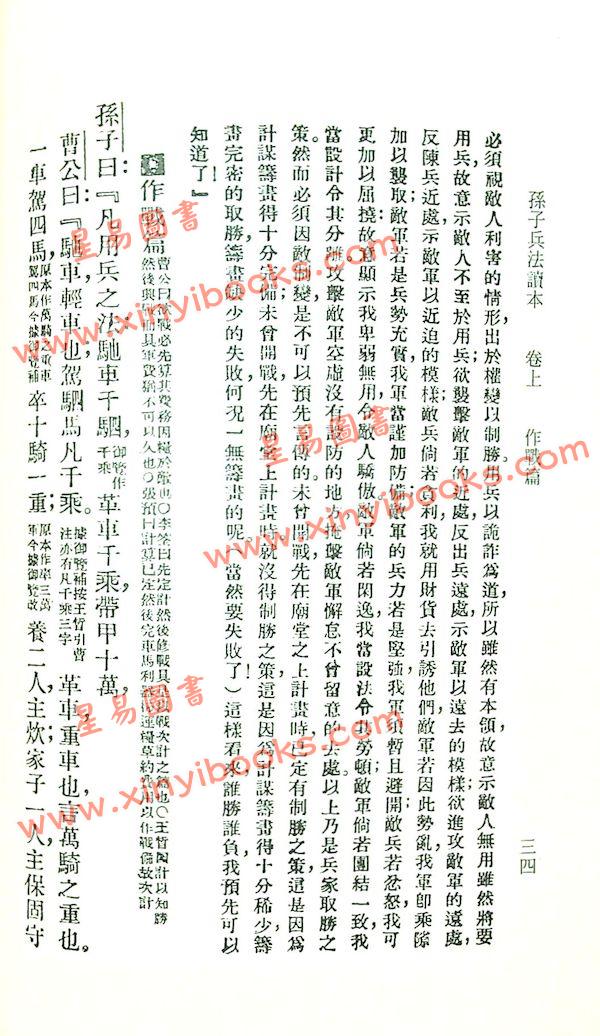 孫子兵法讀本　卷上　作戰篇　三四
必須視敵人利害的情形出於權變以制勝用兵以詭詐爲道所以雖然有本領故意示敵人無用雖然將要
用兵故意示敵人不至於用兵欲襲擊敵軍的近處反出兵遠處示敵軍以遠去的模樣欲進攻敵軍的遠處
反陳兵近處示敵軍以近迫的模樣敵兵倘若貪利我就用財貨去引誘他們敵軍若因此勢亂我軍卽乘隙
加以襲取敵軍若是兵勢充實我軍當謹加防備敵軍的兵力若是堅強我軍須暫且避開敵兵若忿怒我可
更加以屈撓故意顯示我卑弱無用令敵人驕傲敵軍倘若閑逸我當設法令其勞頓敵軍倘若團結一致我
當設計令其分離攻擊敵軍空虛沒有設防的地方掩擊敵軍懈怠不曾留意的去處以上乃是兵家取勝之
策然而必須因敵制變是不可以預先言傳的未曾開戰先在廟堂之上計畫時已定有制勝之策這是因爲
計謀籌畫得十分完備未曾開戰先在廟堂上計畫時就沒得制勝之策這是因爲計謀籌畫得十分稀少籌
畫完密的取勝籌畫缺少的失敗何況一無籌畫的呢(當然要失敗了!)這樣看來誰勝誰負我預先可以
知道了!』
作戰篇
曹公曰欲戰必先算其費務因糧於敵也○李筌曰先定計然後修戰具是以戰次計之篇也○王晳曰計以知勝
然後興戰而具軍費猶不可以久也○張預曰計算已定然後完車馬利器械運糧草約費用以作戰備故次計
孫子曰『凡用兵之法馳車千駟御覽作千乘革車千乘帶甲十萬
曹公曰『馳車輕車也駕駟馬凡千乘據御覽補按王晳引曹注亦有凡千乘三字革車重車也言萬騎之重也
一車駕四馬原本作萬騎之重車駕四馬今據御覽補卒十騎一重原本作率三萬軍今據御覽改養二人主炊家子一人主保固守
www.xinyibooks.com
星易圖書
www.xinyibooks.com
星易圖書
www.xinyibooks.com
星易圖書
www.xinyibooks.com